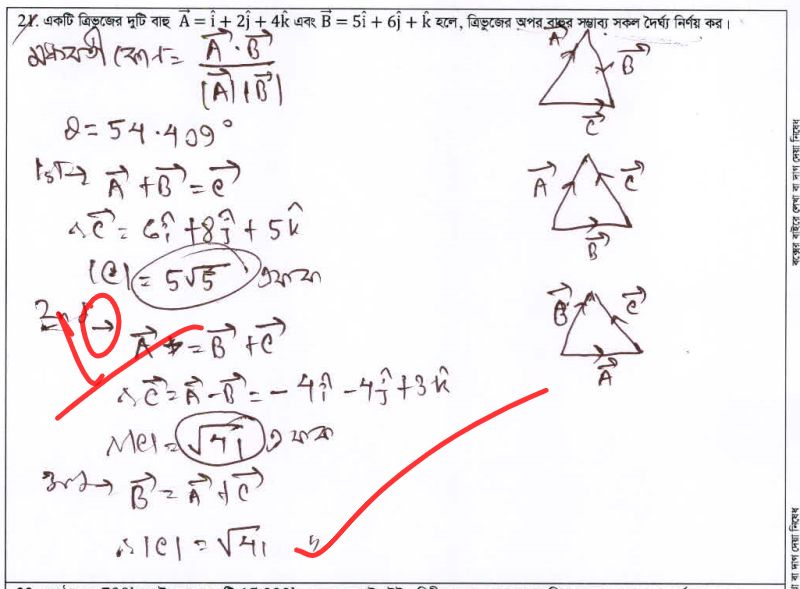 21. একটি ত্রিভুজের দুটি বাহু A⃗ = î + 2ĵ + 4k̂ এবং B⃗ = 5î + 6ĵ + k̂ হলে, ত্রিভুজের অপর বাহুর সম্ভাব্য সকল দৈর্ঘ্য নির্ণয় কর।
মধ্যবর্তী কোণ = A⃗ · B⃗ / |A⃗| |B⃗|
θ = 54.409°
1st → A⃗ + B⃗ = C⃗
∴ C⃗ = 6î + 8ĵ + 5k̂
|C| = 5√5 একক
2nd → A⃗ = B⃗ + C⃗
∴ C⃗ = A⃗ - B⃗ = -4î - 4ĵ + 3k̂
∴ |C| = √41 একক
B⃗ = A⃗ + C⃗
∴ |C| = √41
A⃗
B⃗
C⃗
A⃗
C⃗
B⃗
B⃗
C⃗
A⃗
বক্সের বাইরে লেখা বা দাগ দেয়া নিষেধ
বা দাগ দেয়া নিষেধ